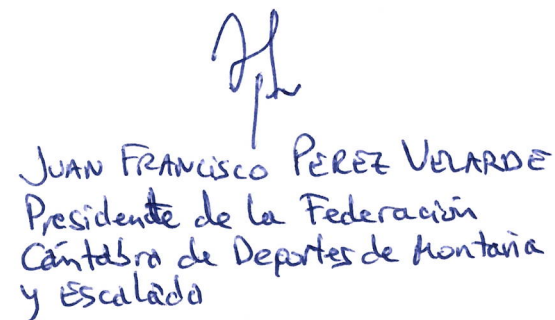 JUAN FRANCISCO PEREZ VELARDE
Presidente de la Federación
Cántabra de Deportes de Montaña
y Escalada